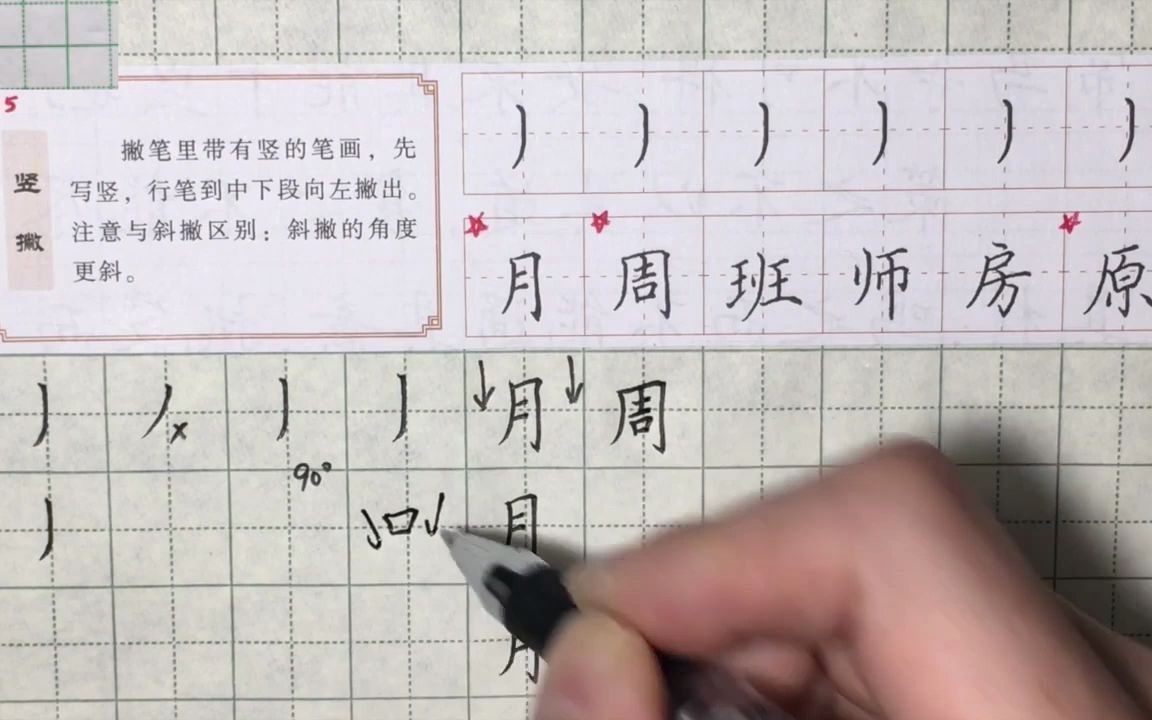 5
竖撇
撇笔里带有竖的笔画，先
写竖，行笔到中下段向左撇出。
注意与斜撇区别：斜撇的角度
更斜。
丿 丿 丿 丿 丿 丿
月 周 班 师 房 原
丿 丿 x 丿 丿 月 周
90°
丿 口 月
月